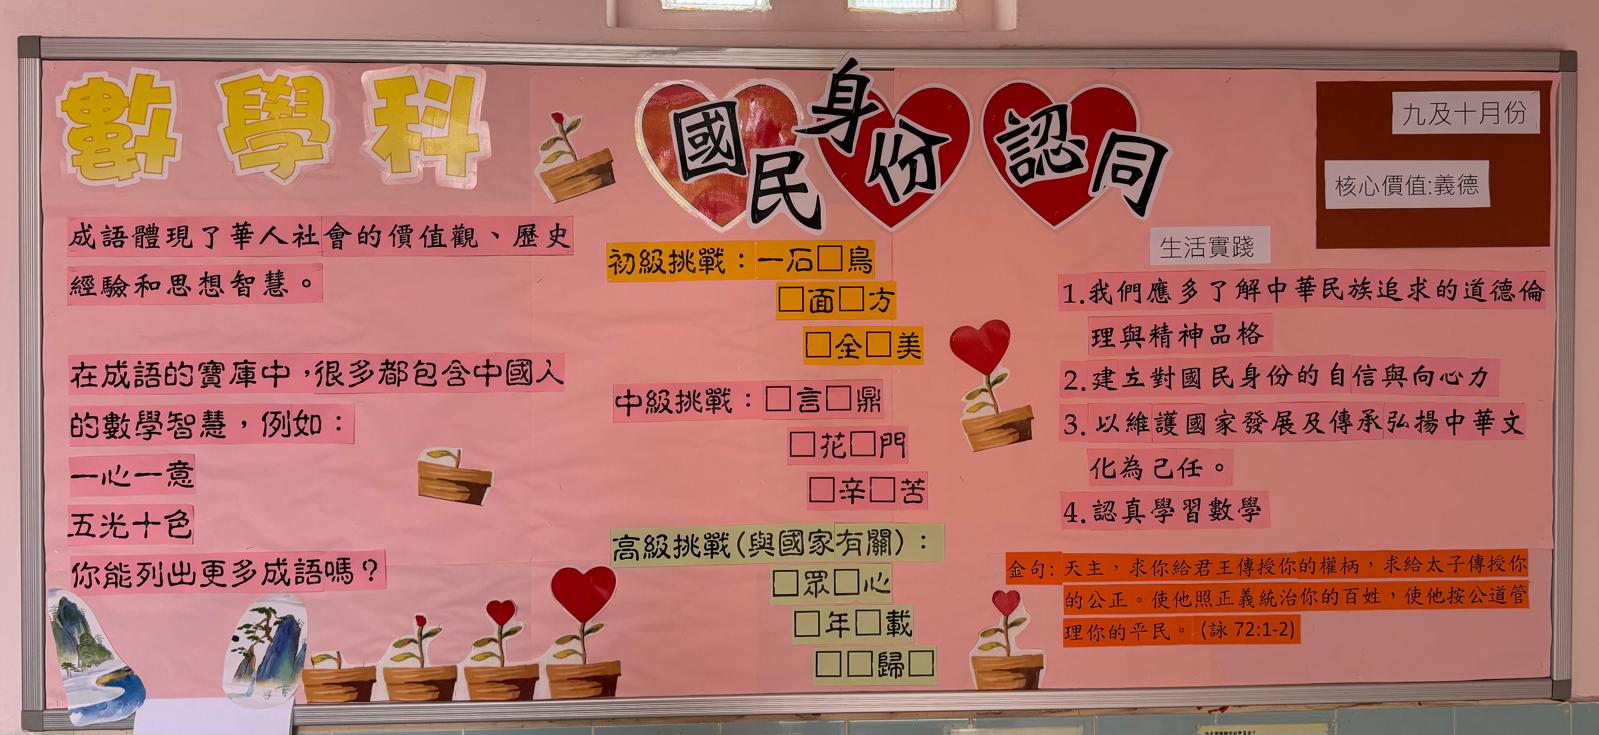 數學科
國民身份認同
九及十月份
核心價值:義德
成語體現了華人社會的價值觀、歷史
經驗和思想智慧。
在成語的寶庫中，很多都包含中國人
的數學智慧，例如：
一心一意
五光十色
你能列出更多成語嗎？
初級挑戰：一石□鳥
□面□方
□全□美
中級挑戰：□言□鼎
□花□門
□辛□苦
高級挑戰(與國家有關)：
□眾□心
□年□載
□□歸□
生活實踐
1.我們應多了解中華民族追求的道德倫
理與精神品格
2.建立對國民身份的自信與向心力
3.以維護國家發展及傳承弘揚中華文
化為己任。
4.認真學習數學
金句: 天主，求你給君王傳授你的權柄，求給太子傳授你
的公正。使他照正義統治你的百姓，使他按公道管
理你的平民。 (詠 72:1-2)